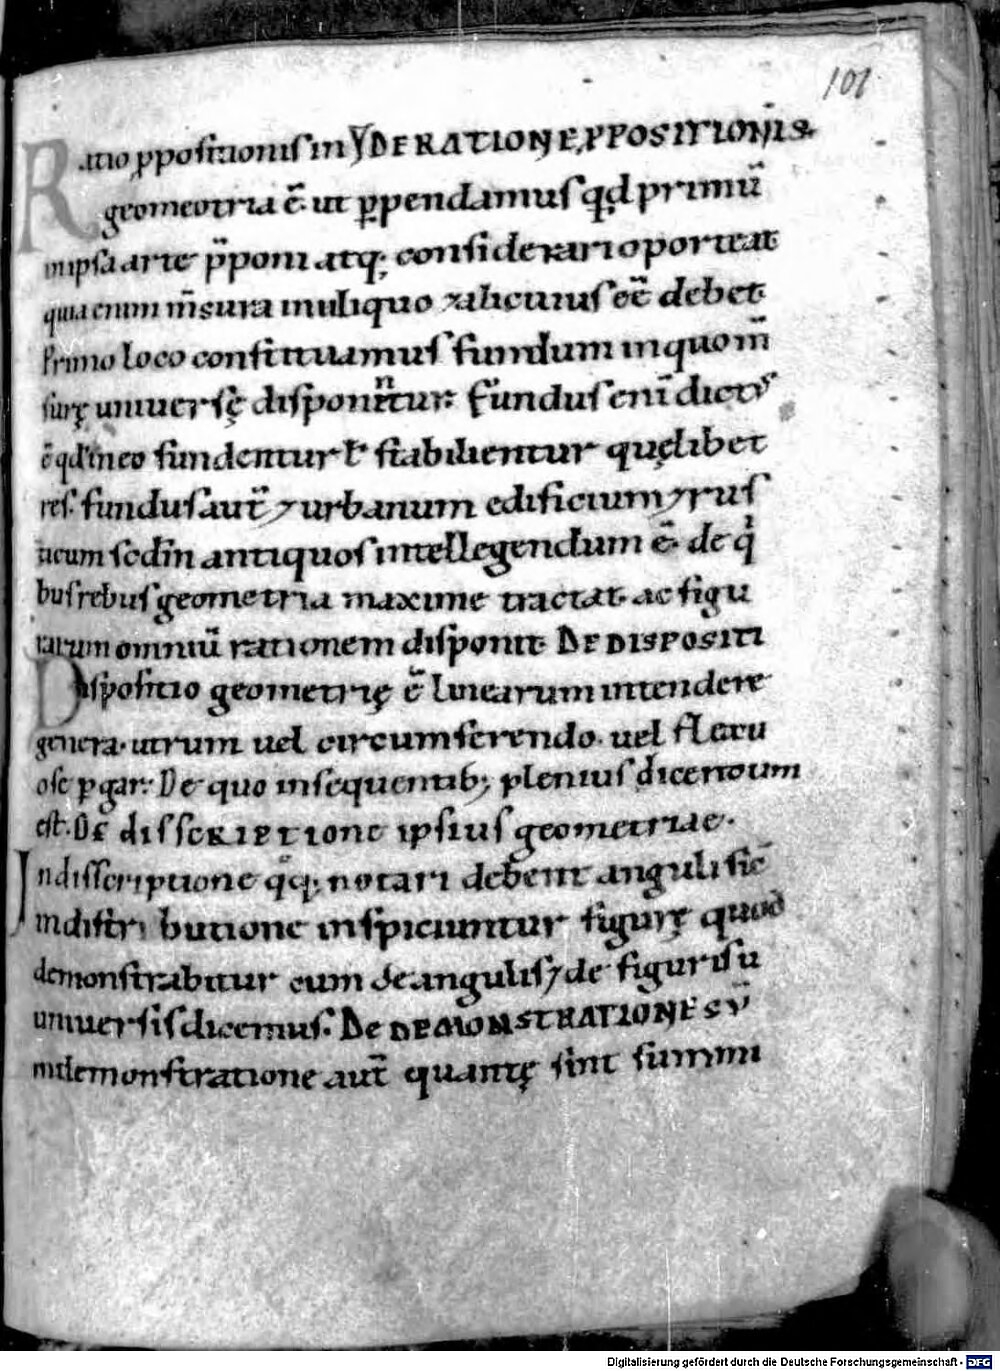 101
Ratio ꝓpositionis in DE RATIONE PPOSITIONIS
geometria ē. ut ꝑpendamus qd primū
in ipsa arte p̄poni atq; considerari oporteat
quia enim m̄sura in aliquo alicuius eē debet
Primo loco constituamus fundum in quo m̄
surę uniuersę disponuntur. fundus enī dictus
ē qd in eo fundentur ł stabilientur quęlibet
res. fundus aut̄ ⁊ urbanum edificium ⁊ rus
ticum scdm̄ antiquos intellegendum ē. de qi
bus rebus geometria maxime tractat. ac figu
rarum omniū rationem disponit. DE DISPOSITI
Dispositio geometrię ē linearum intendere
genera. utrum uel circumferendo. uel flexu
ose ꝑgar. De quo in sequentib; plenius dicertoum
est. DE disscRIPtione ipsius geometriae.
In disscriptione qq; notari debent anguli sic̄
in distributione inspiciuntur figurę quod
demonstrabitur cum de angulis ⁊ de figuris u
uniuersis dicemus. De DEMONSTRATIONE
In demonstratione aut̄ quantę sint summi
Digitalisierung gefördert durch die Deutsche Forschungsgemeinschaft - DFG